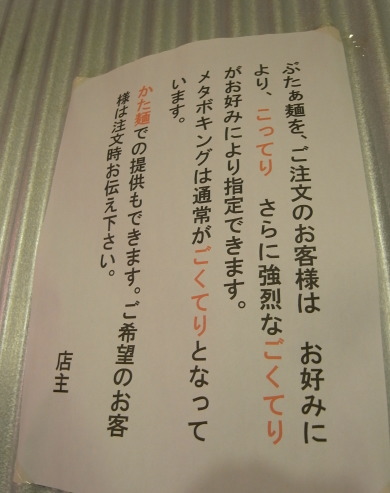 ぶたぁ麺を、ご注文のお客様は　お好みに
より、こってり　さらに強烈なごくてり
がお好みにより指定できます。
メタボキングは通常がごくてりとなって
います。
かた麺での提供もできます。ご希望のお客
様は注文時お伝え下さい。
店主